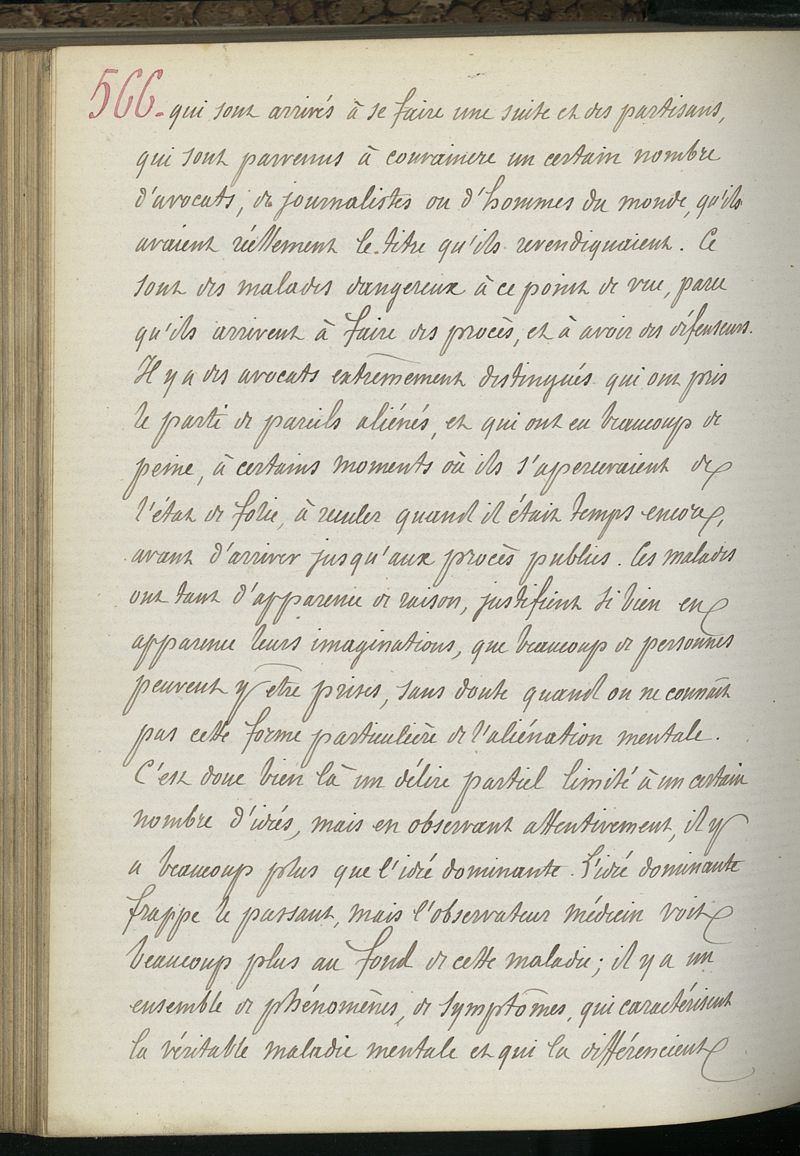 566. qui sont arrivés à se faire une suite et des partisans,
qui sont parvenus à convaincre un certain nombre
d'avocats, de journalistes ou d'hommes du monde, qu'ils
avaient réellement le titre qu'ils revendiquaient. Ce
sont des malades dangereux à ce point de vue, parce
qu'ils arrivent à faire des procès, et à avoir des défenseurs.
Il y a des avocats extrêmement distingués qui ont pris
le parti de pareils aliénés, et qui ont eu beaucoup de
peine, à certains moments où ils s'apercevaient de
l'état de folie, à reculer quand il était temps encore,
avant d'arriver jusqu'aux procès publics. Ces malades
ont tant d'apparence de raison, justifient si bien en
apparence leurs imaginations, que beaucoup de personnes
peuvent y être prises, sans doute quand on ne connaît
pas cette forme particulière de l'aliénation mentale.
C'est donc bien là un délire partiel limité à un certain
nombre d'idées, mais en observant attentivement, il y
a beaucoup plus que l'idée dominante. L'idée dominante
frappe le passant, mais l'observateur médecin voit
beaucoup plus au fond de cette maladie; il y a un
ensemble de phénomènes, de symptômes, qui caractérisent
la véritable maladie mentale et qui la différencient